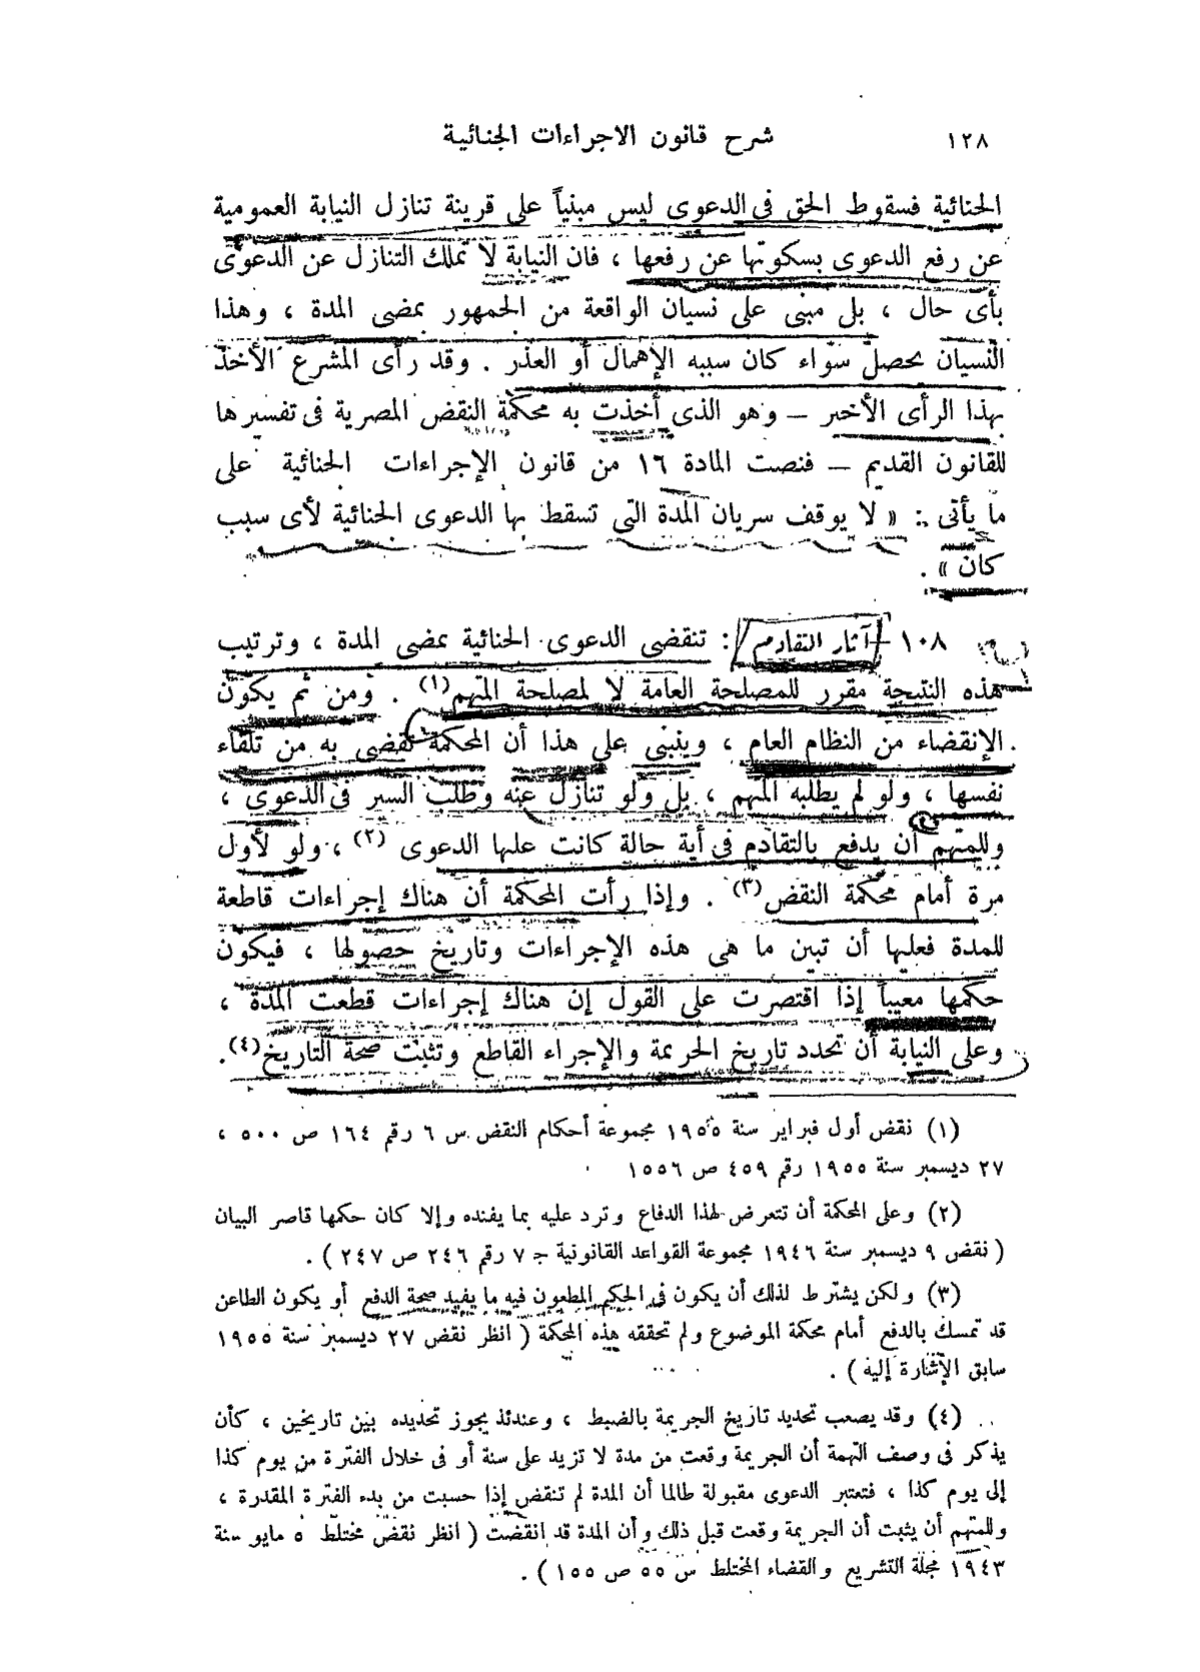 ١٢٨ شرح قانون الاجراءات الجنائية
الجنائية فسقوط الحق في الدعوى ليس مبنياً على قرينة تنازل النيابة العمومية
عن رفع الدعوى بسكوتها عن رفعها ، فان النيابة لا تملك التنازل عن الدعوى
بأى حال ، بل مبنى على نسيان الواقعة من الجمهور بمضى المدة ، وهذا
النسيان يحصل سواء كان سببه الإهمال أو العذر . وقد رأى المشرع الأخذ
بهذا الرأى الأخير – وهو الذى أخذت به محكمة النقض المصرية فى تفسيرها
للقانون القديم – فنصت المادة ١٦ من قانون الإجراءات الجنائية على
ما يأتى : « لا يوقف سريان المدة التى تسقط بها الدعوى الجنائية لأى سبب
كان » .
١٠٨ – آثار التقادم : تنقضى الدعوى الجنائية بمضى المدة ، وترتيب
هذه النتيجة مقرر للمصلحة العامة لا لمصلحة المتهم(١) . ومن ثم يكون
الإنقضاء من النظام العام ، وينبنى على هذا أن المحكمة تقضى به من تلقاء
نفسها ، ولو لم يطلبه المتهم ، بل ولو تنازل عنه وطلب السير فى الدعوى ،
وللمتهم أن يدفع بالتقادم فى أية حالة كانت عليها الدعوى (٢) ، ولو لأول
مرة أمام محكمة النقض(٣) . وإذا رأت المحكمة أن هناك إجراءات قاطعة
للمدة فعليها أن تبين ما هى هذه الإجراءات وتاريخ حصولها ، فيكون
حكمها معيباً إذا اقتصرت على القول إن هناك إجراءات قطعت المدة ،
وعلى النيابة أن تحدد تاريخ الجريمة والإجراء القاطع وتثبت صحة التاريخ(٤).
(١) نقض أول فبراير سنة ١٩٥٥ مجموعة أحكام النقض س ٦ رقم ١٦٤ ص ٥٠٠ ،
٢٧ ديسمبر سنة ١٩٥٥ رقم ٤٥٩ ص ١٥٥٦
(٢) وعلى المحكمة أن تتعرض لهذا الدفاع وترد عليه بما يفنده وإلا كان حكمها قاصر البيان
( نقض ٩ ديسمبر سنة ١٩٤٦ مجموعة القواعد القانونية جـ ٧ رقم ٢٤٦ ص ٢٤٧ ) .
(٣) ولكن يشترط لذلك أن يكون فى الحكم المطعون فيه ما يفيد صحة الدفع أو يكون الطاعن
قد تمسك بالدفع أمام محكمة الموضوع ولم تحققه هذه المحكمة ( انظر نقض ٢٧ ديسمبر سنة ١٩٥٥
سابق الإشارة إليه ) .
(٤) وقد يصعب تحديد تاريخ الجريمة بالضبط ، وعندئذ يجوز تحديده بين تاريخين ، كأن
يذكر فى وصف التهمة أن الجريمة وقعت من مدة لا تزيد على سنة أو فى خلال الفترة من يوم كذا
إلى يوم كذا ، فتعتبر الدعوى مقبولة طالما أن المدة لم تنقض إذا حسبت من بدء الفترة المقدرة ،
وللمتهم أن يثبت أن الجريمة وقعت قبل ذلك وأن المدة قد انقضت ( انظر نقض مختلط ٥ مايو سنة
١٩٤٣ مجلة التشريع والقضاء المختلط س ٥٥ ص ١٥٥ ) .